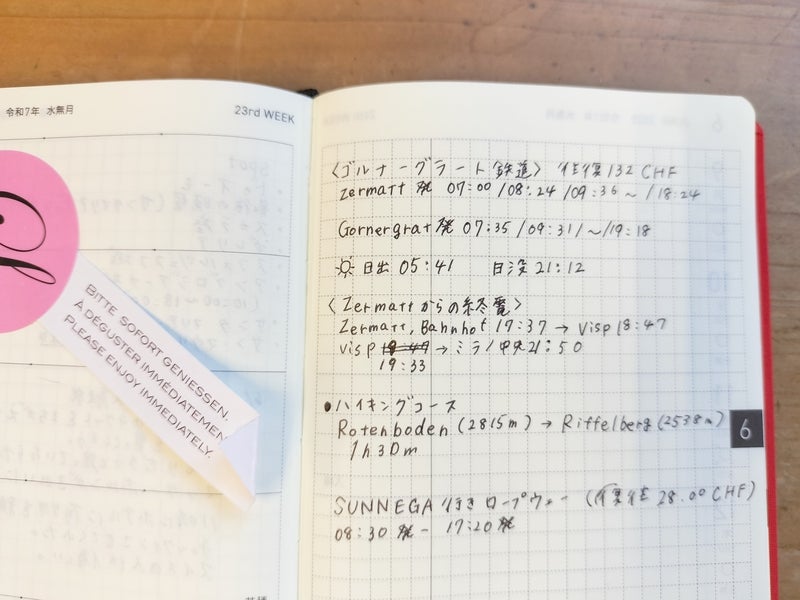 令和7年 水無月
23rd WEEK
BITTE SOFORT GENIESSEN.
À DÉGUSTER IMMÉDIATEMEN
PLEASE ENJOY IMMEDIATELY.
〈ゴルナーグラート鉄道〉 往復132 CHF
Zermatt 発 07:00 /08:24 /09:36 ~ /18:24
Gornergrat 発 07:35 /09:31/~/19:18
日出 05:41 日没 21:12
〈Zermattからの終電〉
Zermatt, Bahnhof 17:37 → Visp 18:47
Visp 18:47 → ミラノ中央21:50
19:33
●ハイキングコース
Rotenboden (2815m) → Riffelberg (2538m)
1h30m
6
SUNNEGA 行きロープウェー (復往 28.00 CHF)
08:30 発 - 17:20発